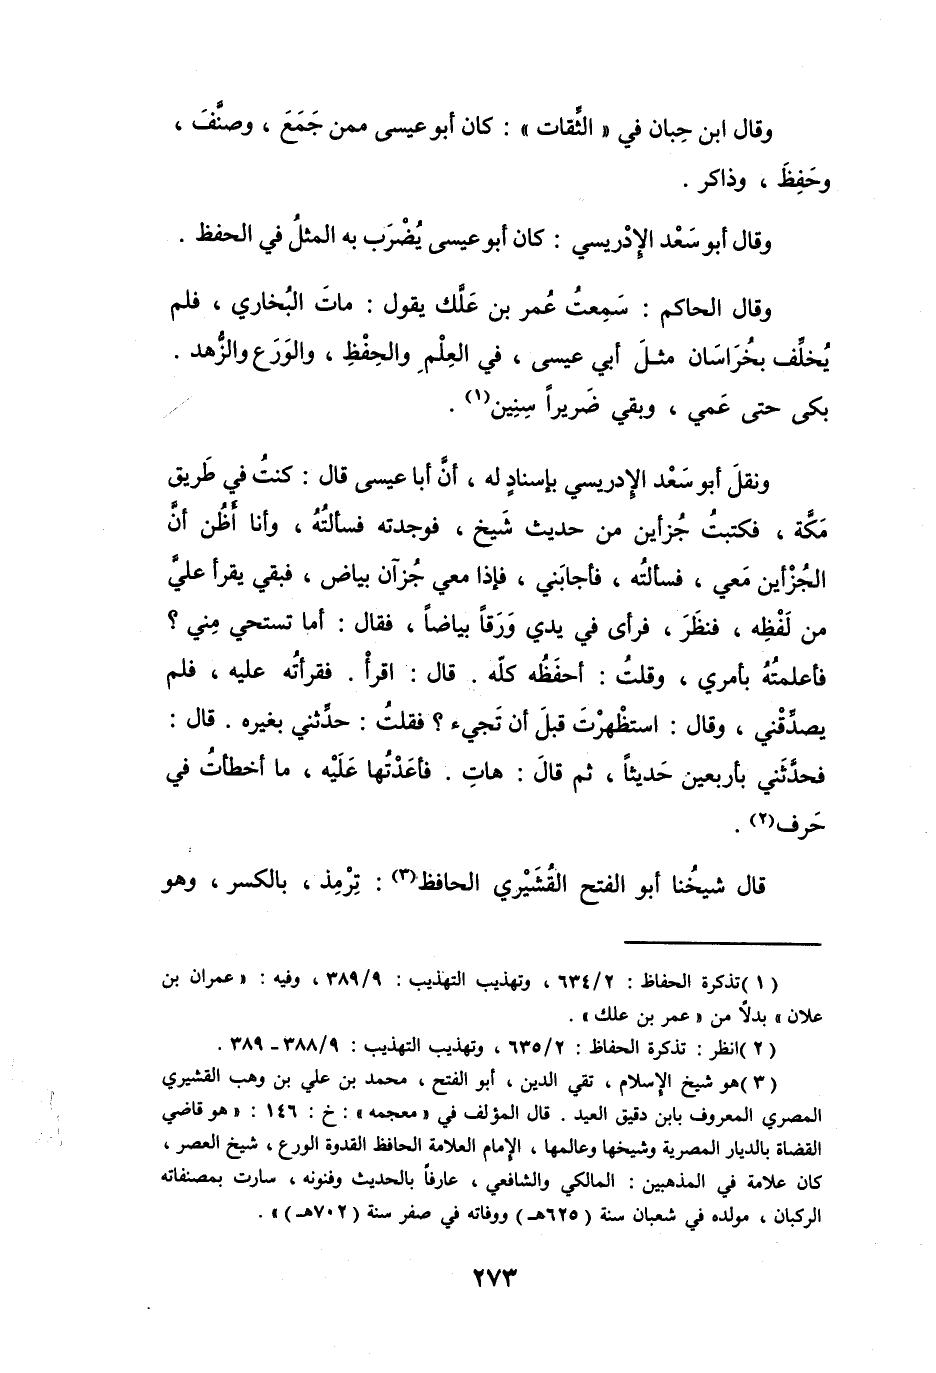 وقال ابن حِبان في « الثِّقات » : كان أبو عيسى ممن جَمَعَ ، وصنَّفَ ،
وحَفِظَ ، وذاكر .
وقال أبو سَعْد الإِدْريسي : كان أبو عيسى يُضْرَب به المثلُ في الحفظ .
وقال الحاكم : سَمِعتُ عُمر بن عَلَّك يقول : ماتَ البُخاري ، فلم
يُخلِّف بخُرَاسَان مثلَ أبي عيسى ، في العِلْمِ والحِفْظِ ، والوَرَع والزُّهد .
بكى حتى عَمي ، وبقي ضَريراً سِنِين(١) .
ونقلَ أبو سَعْد الإدريسي بإسنادٍ له ، أنَّ أبا عيسى قال : كنتُ في طَريق
مَكَّة ، فكتبتُ جُزأين من حديث شَيخ ، فوجدته فسألتُهُ ، وأنا أَظُن أنَّ
الجُزْأين مَعي ، فسألتُه ، فأجابَني ، فإذا معي جُزآن بياض ، فبقي يقرأ عليَّ
من لَفْظِه ، فنظَرَ ، فرأى في يدي وَرَقاً بياضاً ، فقال : أما تستحي مِني ؟
فأعلمتُهُ بأمري ، وقلتُ : أحفَظُه كلّه . قال : اقرأْ . فقرأتُه عليه ، فلم
يصدِّقْني ، وقال : استظْهرْتَ قبلَ أن تَجيء ؟ فقلتُ : حدِّثني بغيره . قال :
فحدَّثَني بأربعين حَديثاً ، ثم قالَ : هاتِ . فأعَدْتُها عَلَيْه ، ما أخطأتُ في
حَرف(٢) .
قال شيخُنا أبو الفتح القُشَيْري الحافظ(٣) : تِرْمِذ ، بالكسر ، وهو
( ١ )تذكرة الحفاظ : ٦٣٤/٢ ، وتهذيب التهذيب : ٣٨٩/٩ ، وفيه : « عمران بن
علان » بدلاً من « عمر بن علك » .
( ٢ )انظر : تذكرة الحفاظ : ٦٣٥/٢ ، وتهذيب التهذيب : ٣٨٨/٩ - ٣٨٩ .
( ٣ )هو شيخ الإسلام ، تقي الدين ، أبو الفتح ، محمد بن علي بن وهب القشيري
المصري المعروف بابن دقيق العيد . قال المؤلف في « معجمه » : خ : ١٤٦ : « هو قاضي
القضاة بالديار المصرية وشيخها وعالمها ، الإمام العلامة الحافظ القدوة الورع ، شيخ العصر ،
كان علامة في المذهبين : المالكي والشافعي ، عارفاً بالحديث وفنونه ، سارت بمصنفاته
الركبان ، مولده في شعبان سنة ( ٦٢٥هـ ) ووفاته في صفر سنة ( ٧٠٢هـ ) » .
٢٧٣